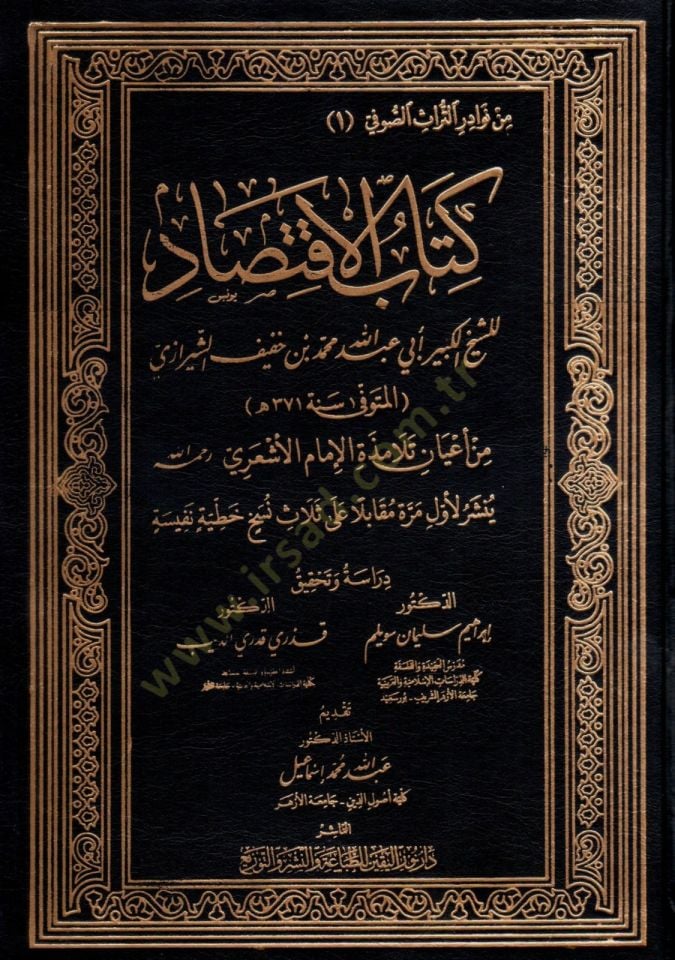 مِنْ نَوَادِرِ التُّرَاثِ الصُّوفِي (١)
كِتَابُ الاقْتِصَادِ
يونس
للشيخ الكبير أبي عبد الله محمد بن خفيف الشيرازي
(المتوفى سنة ٣٧١ هـ)
مِنْ أَعْيَانِ تَلَامِذَةِ الإِمَامِ الأَشْعَرِي رحمه الله
يُنْشَرُ لأَوَّلِ مَرَّةٍ مُقَابَلًا عَلَى ثَلَاثِ نُسَخٍ خَطِّيَّةٍ نَفِيسَةٍ
دِرَاسَةُ وَتَحْقِيقُ
الدكتور
إبراهيم سليمان سويلم
مدرس العقيدة والفلسفة
كلية الدراسات الإسلامية والعربية
جامعة الأزهر الشريف - بورسعيد
الدكتور
قدري قدري
تقديم
الأستاذ الدكتور
عبد الله محمد إسماعيل
كلية أصول الدين - جامعة الأزهر
الناشر
دار نور اليقين للطباعة والنشر والتوزيع
www.irsad.com.tr